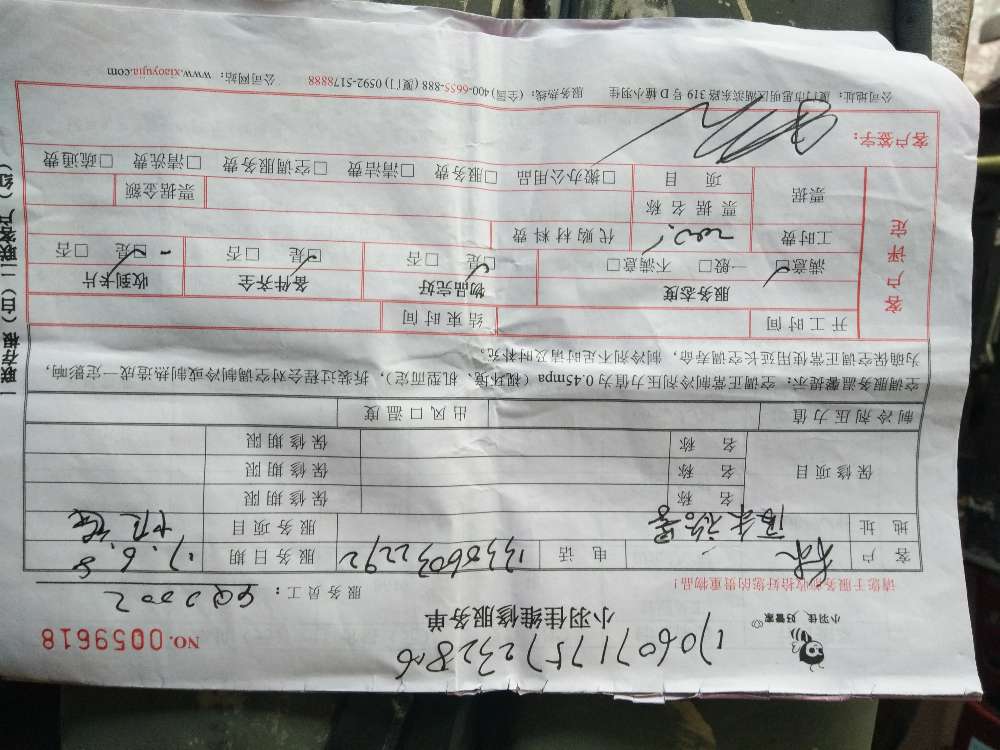 小羽佳,好管家
17060717572328 16
小羽佳维修服务单
NO. 0059618
请您于服务前收拾好您的贵重物品!
服务员工:
客户 林 电话 13860322 92 服务日期 17.6.8
地址 服务项目
保修项目 名称 保修期限
名称 保修期限
名称 保修期限
制冷剂压力值 出风口温度
空调服务温馨提示:空调正常制冷剂压力值为0.45mpa(视环境、机型而定),拆装过程会对空调制冷或制热造成一定影响,
为确保空调正常使用延长空调寿命,制冷剂不足时请及时补充。
客户评定
开工时间 结束时间
服务态度 物品完好 备件齐全 收到卡片
☑满意 □一般 □不满意 ☑是 □否 ☑是 □否 ☑是 □否
工时费 代购材料费
票据 票据名称 票据金额
项目 □搬办公用品 □服务费 □清洁费 □空调服务费 □清洗费 □疏通费
客户签字:
公司地址:厦门市思明区湖滨东路319号D幢小羽佳 服务热线:(全国)400-6655-888 (厦门) 0592-5178888 公司网站:www.xiaoyujia.com
一联存根(白)二联客户(红)